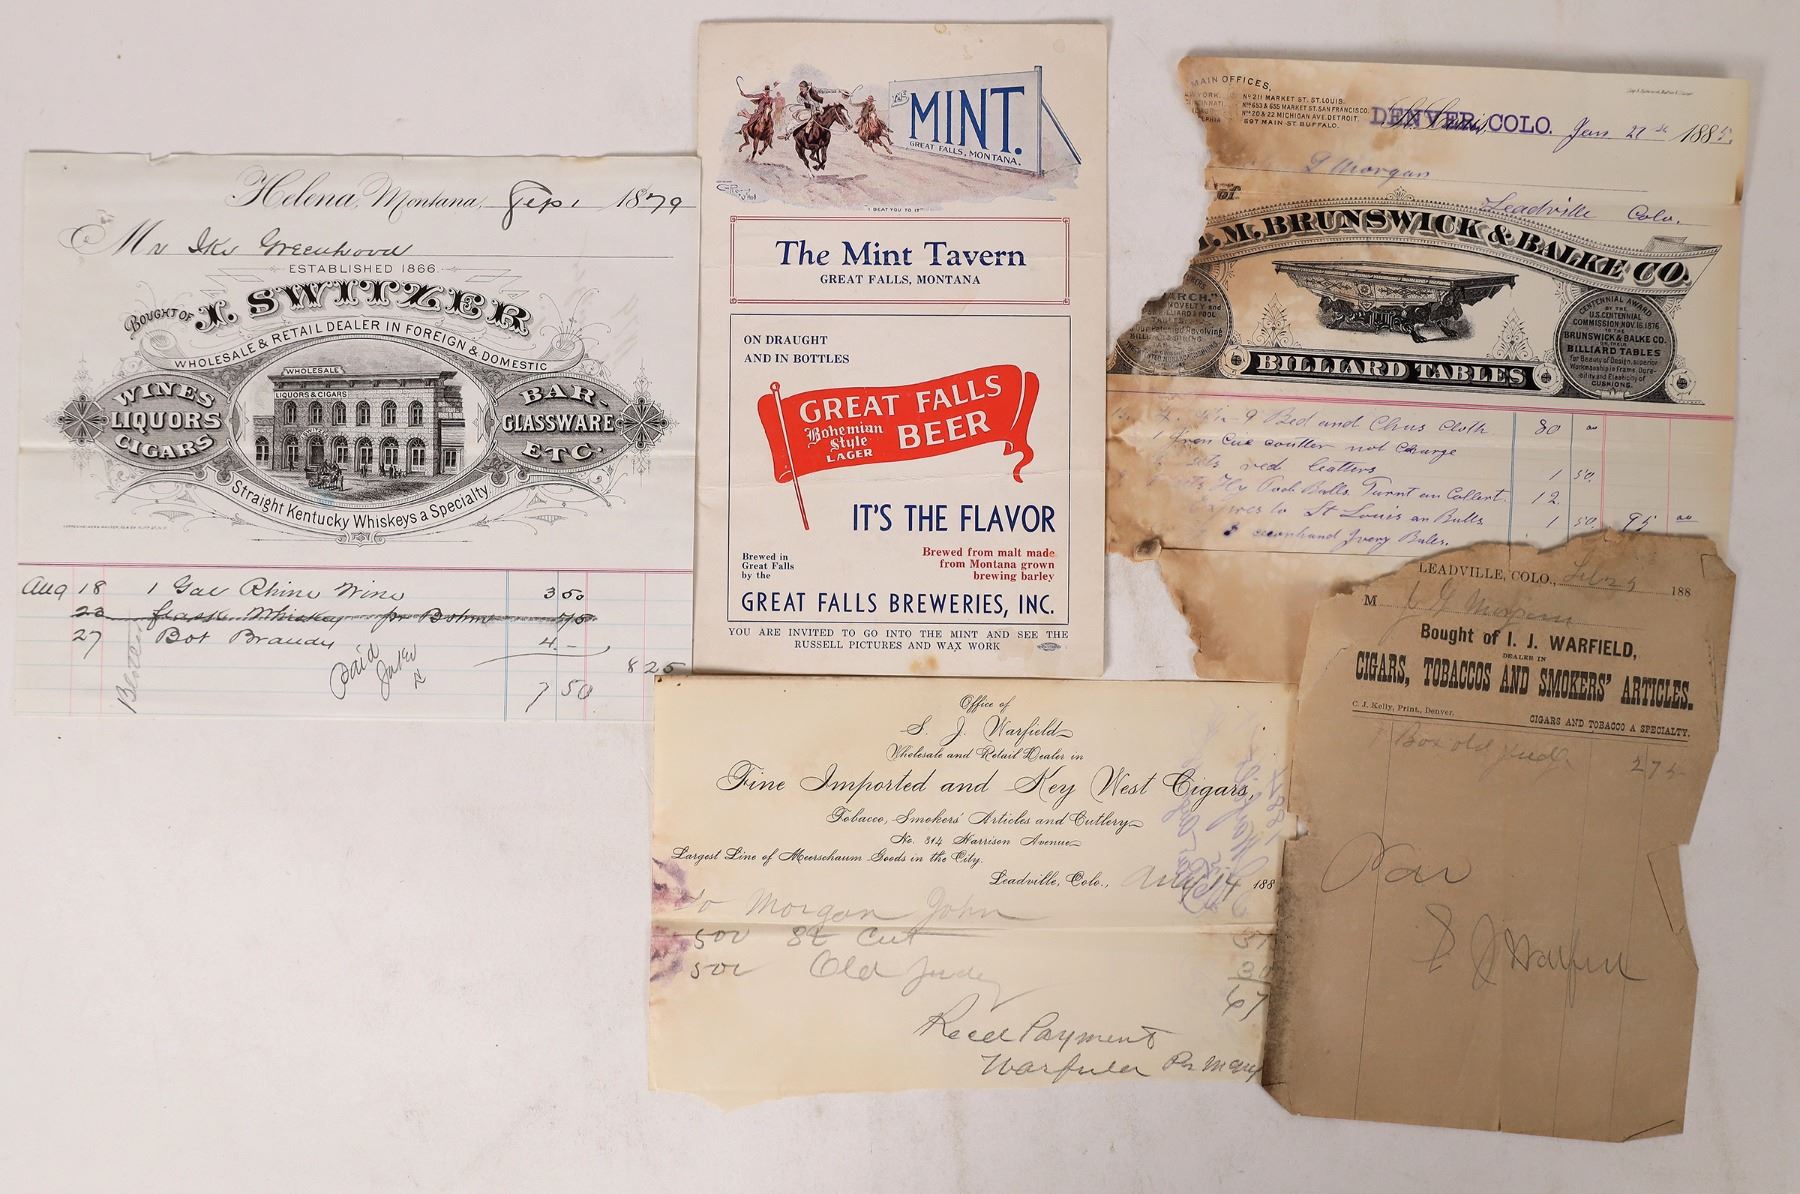 Helena, Montana, Sep 1 1879
Mr Ike Greenhood
ESTABLISHED 1866.
BOUGHT OF I. SWITZER
WHOLESALE & RETAIL DEALER IN FOREIGN & DOMESTIC
WINES
LIQUORS
CIGARS
WHOLESALE
LIQUORS & CIGARS
BAR-
GLASSWARE
ETC.
Straight Kentucky Whiskeys a Specialty.
Aug 18 1 Gal Rhine Wine 3 50
23 Whiskey 75
27 Bot Brandy 4 -
8 25
Paid
7 50
MINT.
GREAT FALLS, MONTANA.
I BEAT YOU TO IT
The Mint Tavern
GREAT FALLS, MONTANA
ON DRAUGHT
AND IN BOTTLES
GREAT FALLS
Bohemian
Style
LAGER
BEER
IT'S THE FLAVOR
Brewed in
Great Falls
by the
Brewed from malt made
from Montana grown
brewing barley
GREAT FALLS BREWERIES, INC.
YOU ARE INVITED TO GO INTO THE MINT AND SEE THE
RUSSELL PICTURES AND WAX WORK
MAIN OFFICES,
No 211 MARKET ST. ST. LOUIS.
Nos 653 & 655 MARKET ST. SAN FRANCISCO.
Nos 20 & 22 MICHIGAN AVE. DETROIT.
597 MAIN ST. BUFFALO.
DENVER, COLO. Jan 21st 1885.
Morgan
Leadville Colo.
M. BRUNSWICK & BALKE CO.
NOVELTY and
BILLIARD & POOL
Revolving
CENTENNIAL AWARD
BY THE
U.S. CENTENNIAL
COMMISSION, NOV. 16. 1876
TO THE
BRUNSWICK & BALKE CO.
ON THEIR
BILLIARD TABLES
for Beauty of Design, superior
Workmanship in Frame, Dura-
bility and Elasticity of
CUSHIONS.
BILLIARD TABLES
9 Bed and Chus Cloth 80 00
1 Iron Cue not Charge
red leathers 1 50.
Pool Balls Turnt an 12
to St Louis an Balls 1 50. 95 00
secondhand Ivory Balls.
Office of
S. J. Warfield
Wholesale and Retail Dealer in
Fine Imported and Key West Cigars,
Tobacco, Smokers' Articles and Cutlery
No. 314 Harrison Avenue
Largest Line of Meerschaum Goods in the City.
Leadville, Colo., July 14 188
To Morgan John
500 St Cut
500 Old Judge 30
67
Recd Payment
Warfield Per
LEADVILLE, COLO., Feb 25 188
M J G Morgan
Bought of I. J. WARFIELD,
DEALER IN
CIGARS, TOBACCOS AND SMOKERS' ARTICLES.
C. J. Kelly, Print., Denver.
CIGARS AND TOBACCO A SPECIALTY.
Box old Judge 2 75
S J Warfield